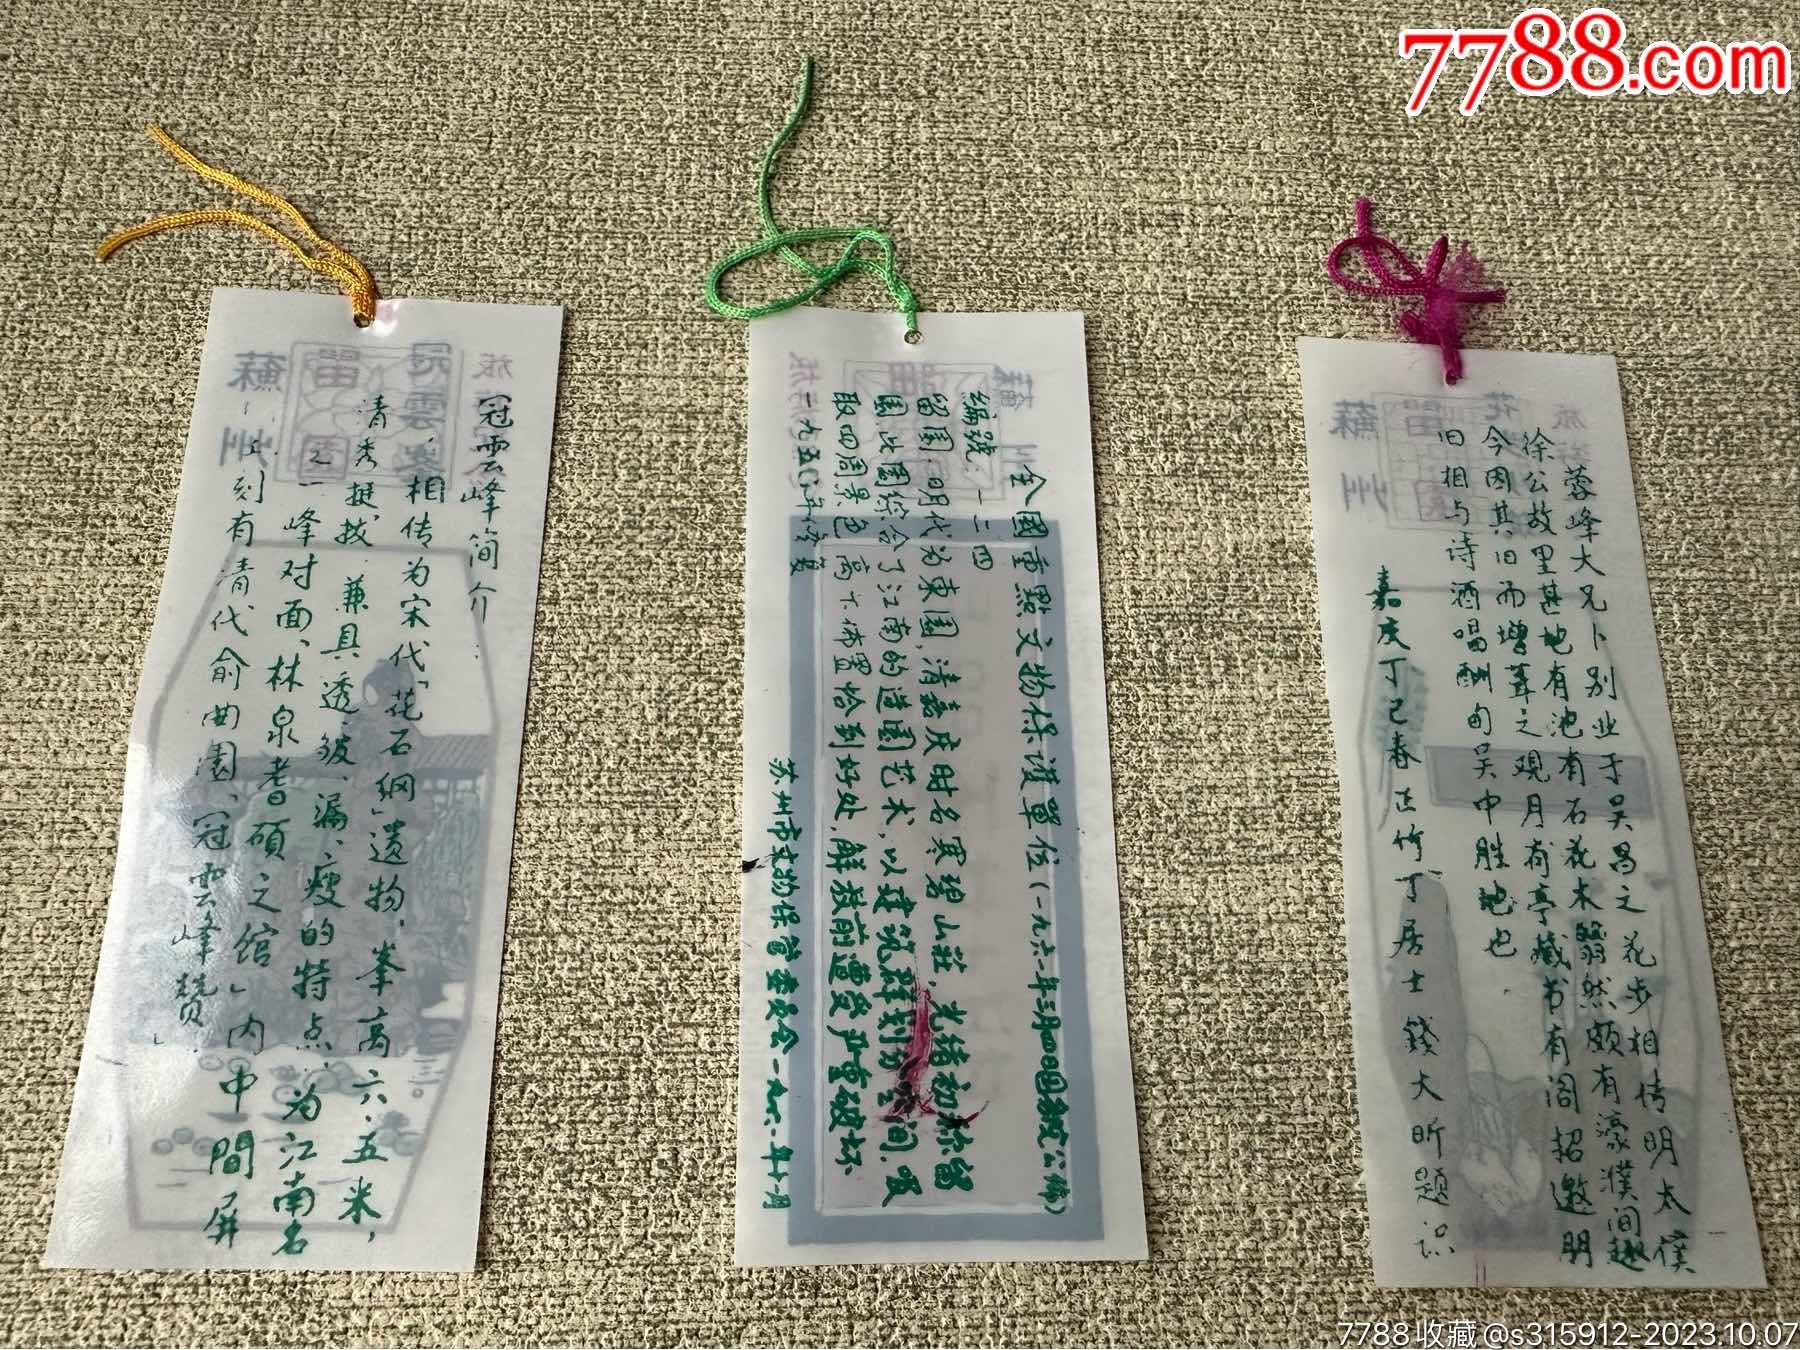 7788.com
冠雲峰简介:
相传为宋代「花石纲」遗物,峯高六.五米,
清秀挺拔,兼具透、皱、漏、瘦的特点,为江南名
峰之一,峰对面、林泉耆硕之馆」内中間屏
上刻有清代俞曲園、冠雲峰贊」.
全國重點文物保護單位(一九六一年三月四日国务院公佈)
編號:一二四
留園:明代为東園,清嘉庆时名寒碧山莊,光绪初称留
園,此園綜合了江南的造園艺术,以建筑群划分空间.吸
取四周景色高下佈置恰到好处,解放前遭受严重破坏
一九五〇年修复
苏州市文物保管委员会一九六一年十一月
蓉峰大兄卜别业于吴昌之花步相传明太僕
徐公故里其地有池有石花木翳然颇有濠濮间趣
今因其旧而增葺之观月有亭藏书有阁招邀朋
旧相与诗酒唱酬匋吴中胜地也
嘉庆丁巳春正竹丁居士錢大昕題识
苏州
留園
冠雲峯
7788收藏@s315912-2023.10.07